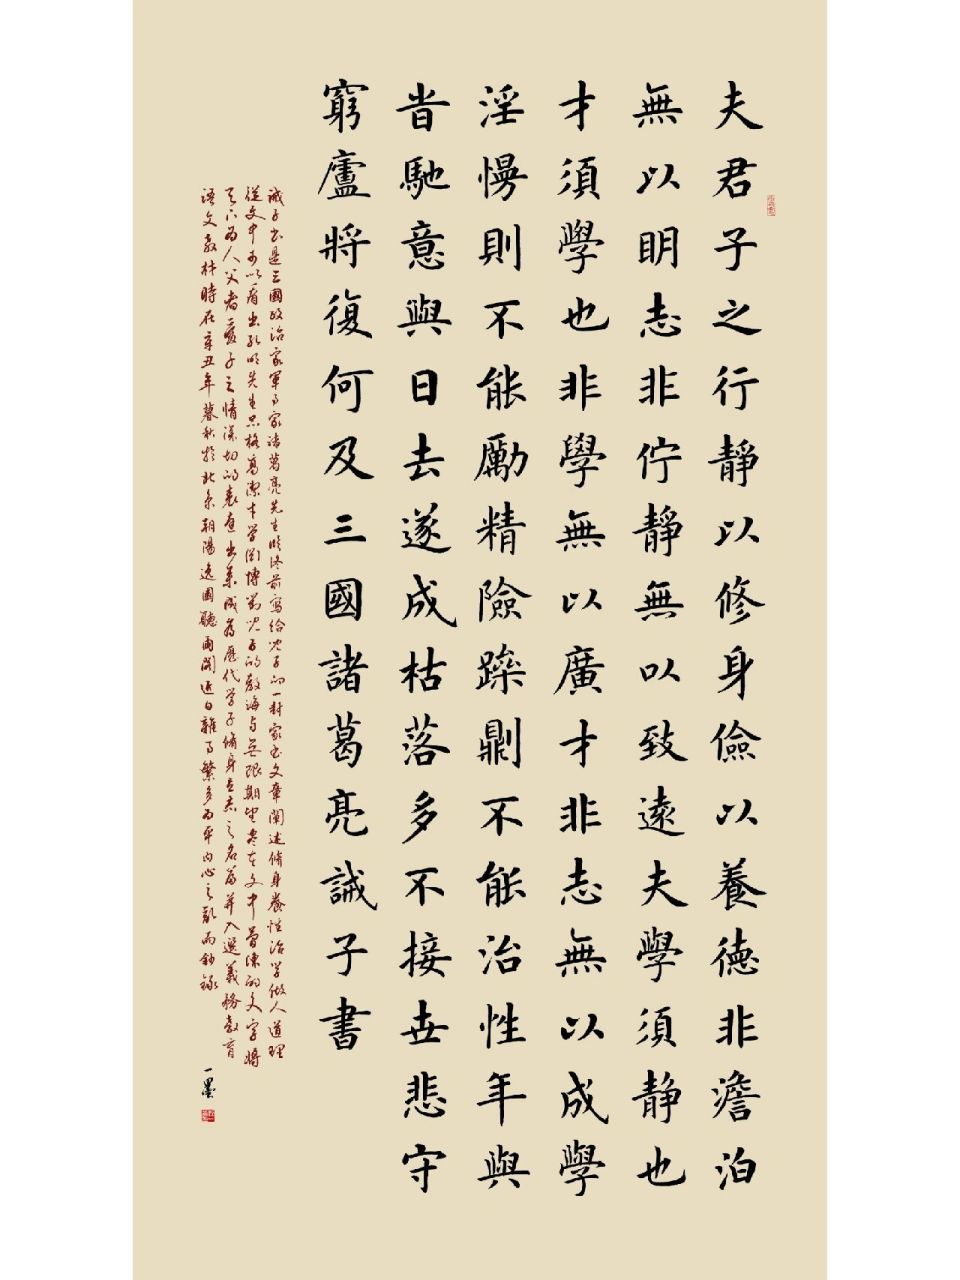 夫君子之行靜以修身儉以養德非澹泊
無以明志非佇靜無以致遠夫學須静也
才須學也非學無以廣才非志無以成學
淫慢則不能勵精險躁則不能治性年與
旹馳意與日去遂成枯落多不接世悲守
窮廬將復何及三國諸葛亮誡子書
誡子書是三國政治家軍事家諸葛亮先生臨終前寫給兒子的一封家書文章闡述脩身養性治學做人道理
從文中可以看出孔明先生品格高潔才學淵博對兒子的教誨与無限期望盡在文中簡練的文字將
天下為人父者愛子之情深切的表達出來成為歷代学子脩身立志之名篇并入選義務教育
語文教材時在辛丑年暮秋於北京朝陽逸園聽雨閣近日雜事繁多為平内心之亂而鈔錄
一墨